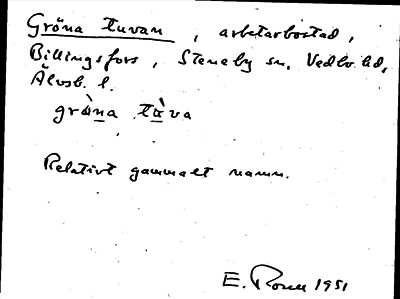 Gröna tuvan, arbetarbostad,
Billingsfors, Steneby sn, Vedbo hd,
Älvsb. l.
grö̀na tù̀va
Relativt gammalt namn.
E. 1951